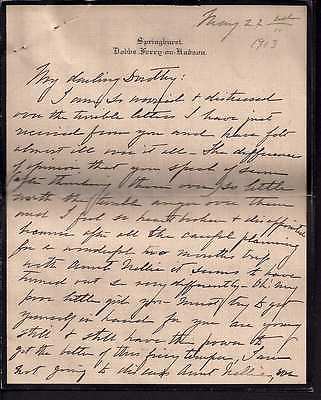 May 22nd
1903
Springhurst.
Dobbs Ferry-on-Hudson.
My darling Dorothy:
I am so worried & distressed
over the terrible letters I have just
received from you and have felt
almost ill over it all - The difference
of opinion that you speak of seem
after thinking them over so little
worth the trouble anger over them
and I feel so heartbroken & disappointed
because after all the careful planning
for a wonderful two months trip
with Aunt Nellie it seems to have
turned out so very differently - Oh! my
poor little girl you must try & get
yourself in hand for you are young
still & still have the power to
get the better of this fiery temper, I am
not going to discuss Aunt Nellie, we